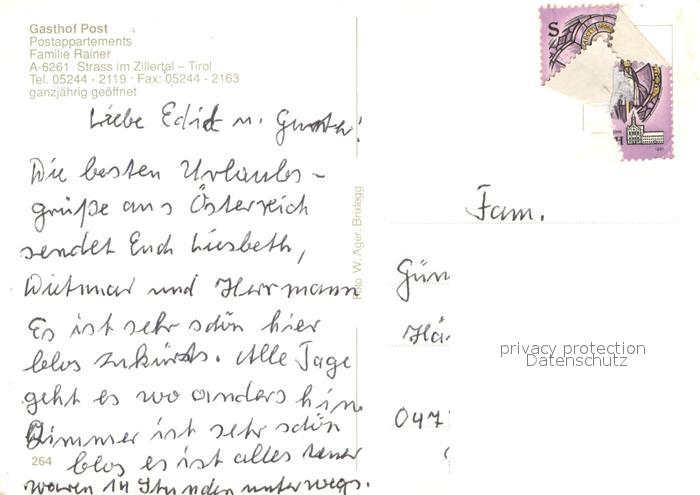 Gasthof Post
Postappartements
Familie Rainer
A-6261 Strass im Zillertal – Tirol
Tel. 05244 - 2119 · Fax: 05244 - 2163
ganzjährig geöffnet
Liebe Edit u. Gunter!
Die besten Urlaubs-
grüße aus Österreich
sendet Euch Liesbeth,
Dietmar und Herrmann
Es ist sehr schön hier
blos zukürts. Alle Tage
geht es wo anders hin.
Zimmer ist sehr schön
blos es ist alles teuer
waren 14 Stunden unterwegs.
264
Foto W. Ager, Brixlegg
S
Fam.
Gün
Hä
047
privacy protection
Datenschutz